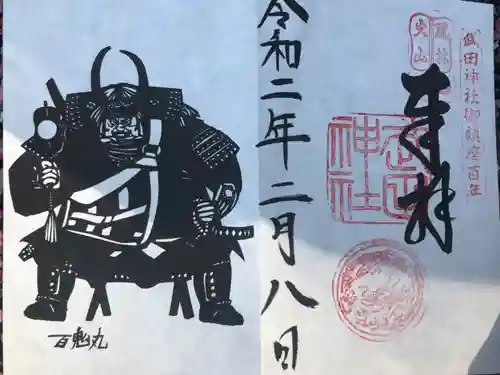 武田神社御鎮座百年
奉拝
武田
神社
令和二年二月八日
百鬼丸